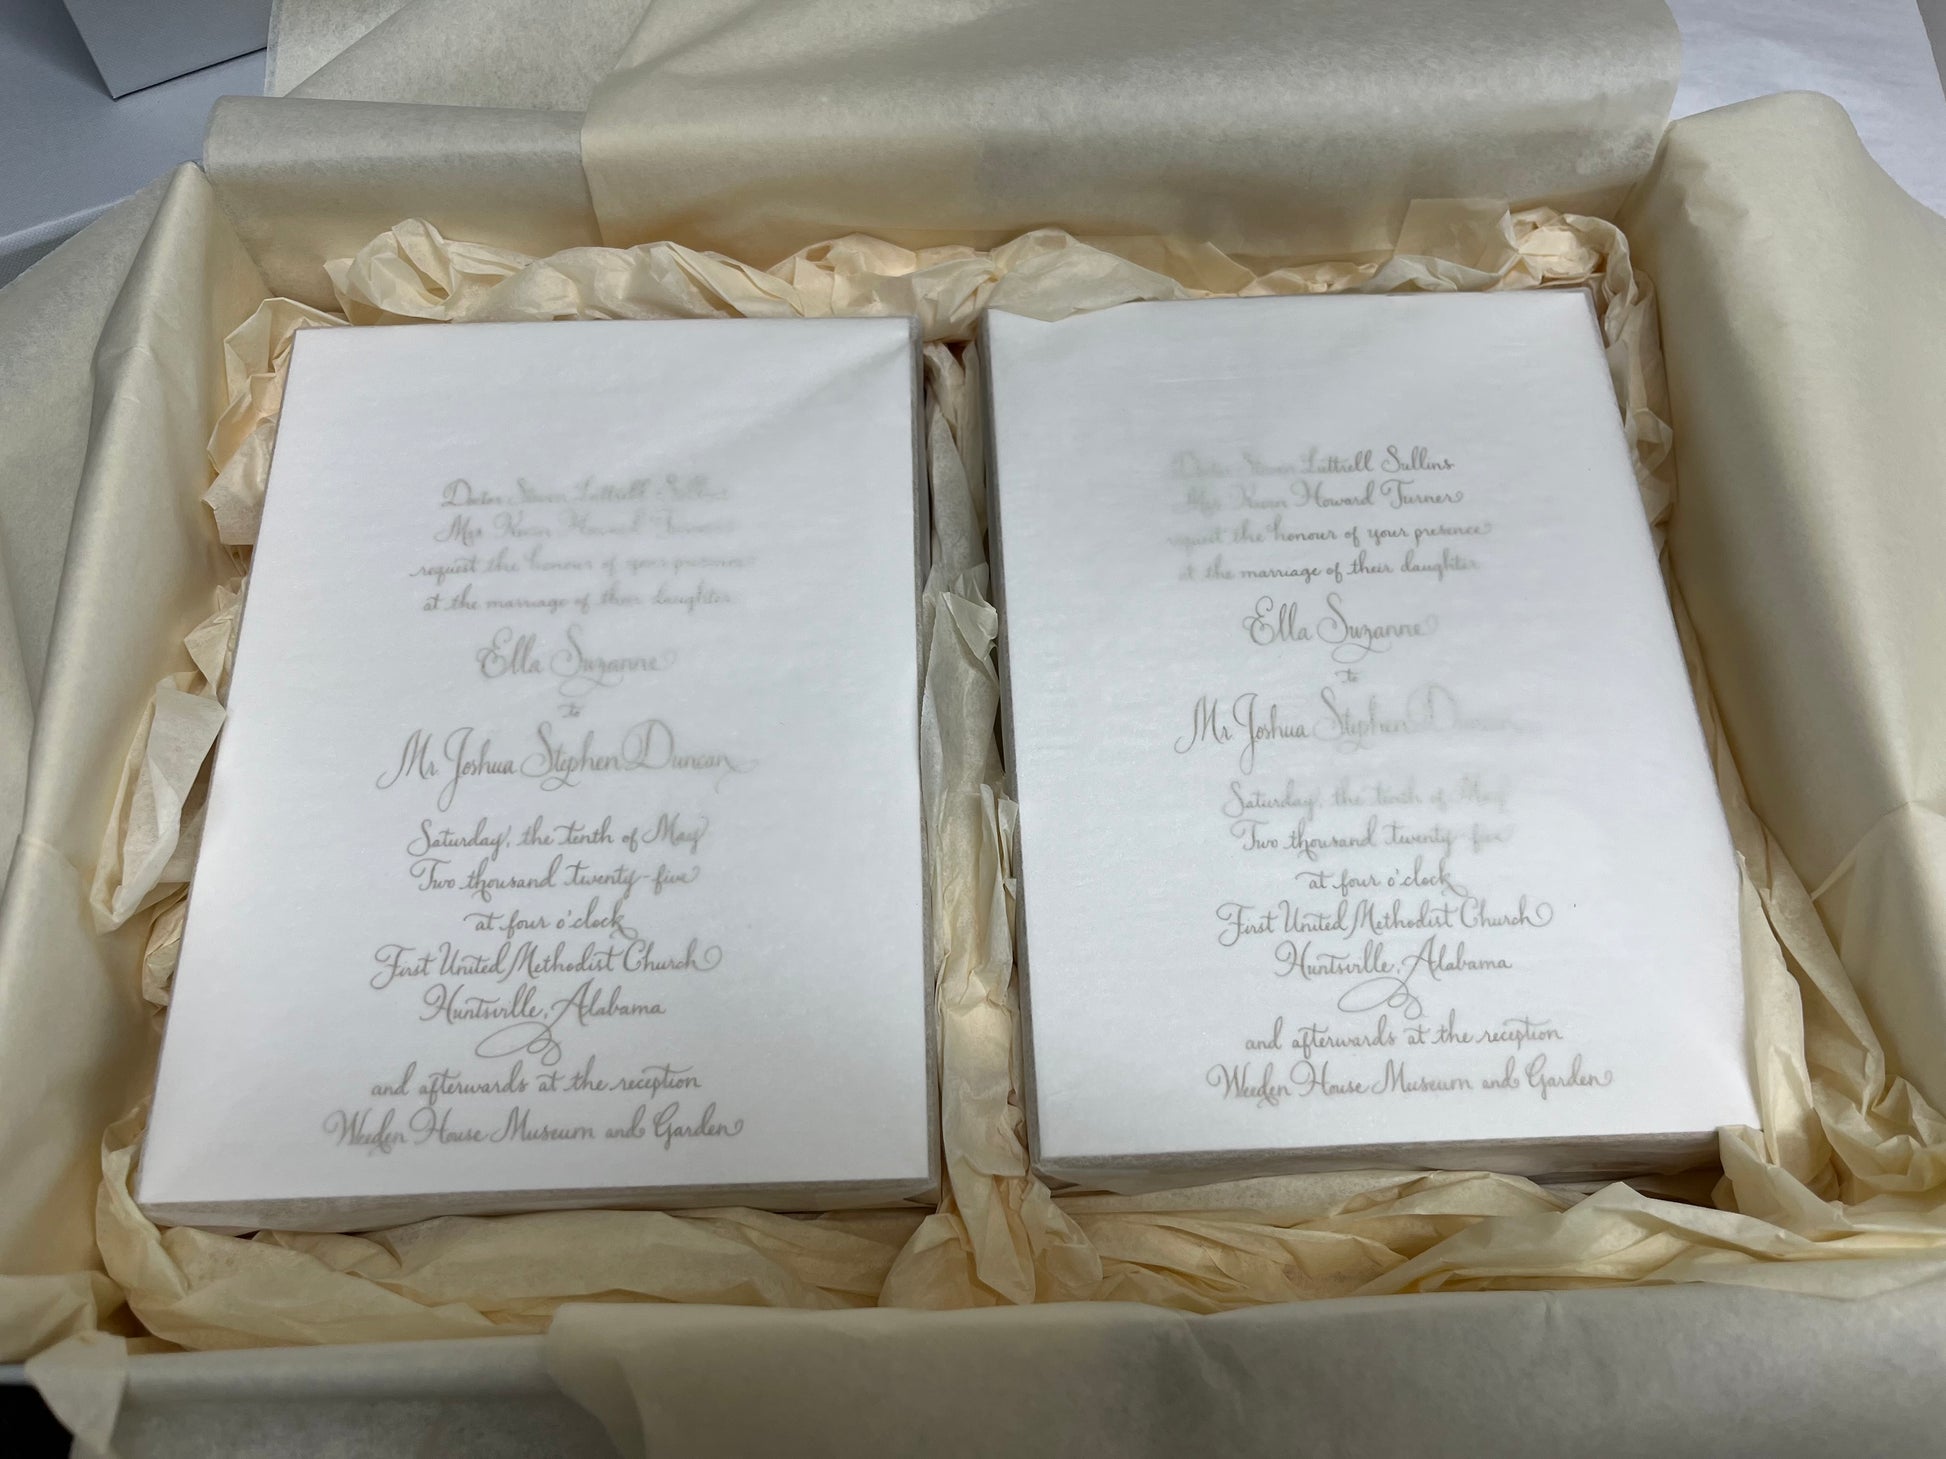 Doctor Steven Luttrell Sullins
Mrs Karen Howard Turner
request the honour of your presence
at the marriage of their daughter
Ella Suzanne
to
Mr Joshua Stephen Duncan
Saturday, the tenth of May
Two thousand twenty-five
at four o'clock
First United Methodist Church
Huntsville, Alabama
and afterwards at the reception
Weeden House Museum and Garden
Luttrell Sullins
Howard Turner
request the honour of your presence
at the marriage of their daughter
Ella Suzanne
to
Mr Joshua Stephen Duncan
Saturday, the tenth of May
Two thousand twenty-five
at four o'clock
First United Methodist Church
Huntsville, Alabama
and afterwards at the reception
Weeden House Museum and Garden